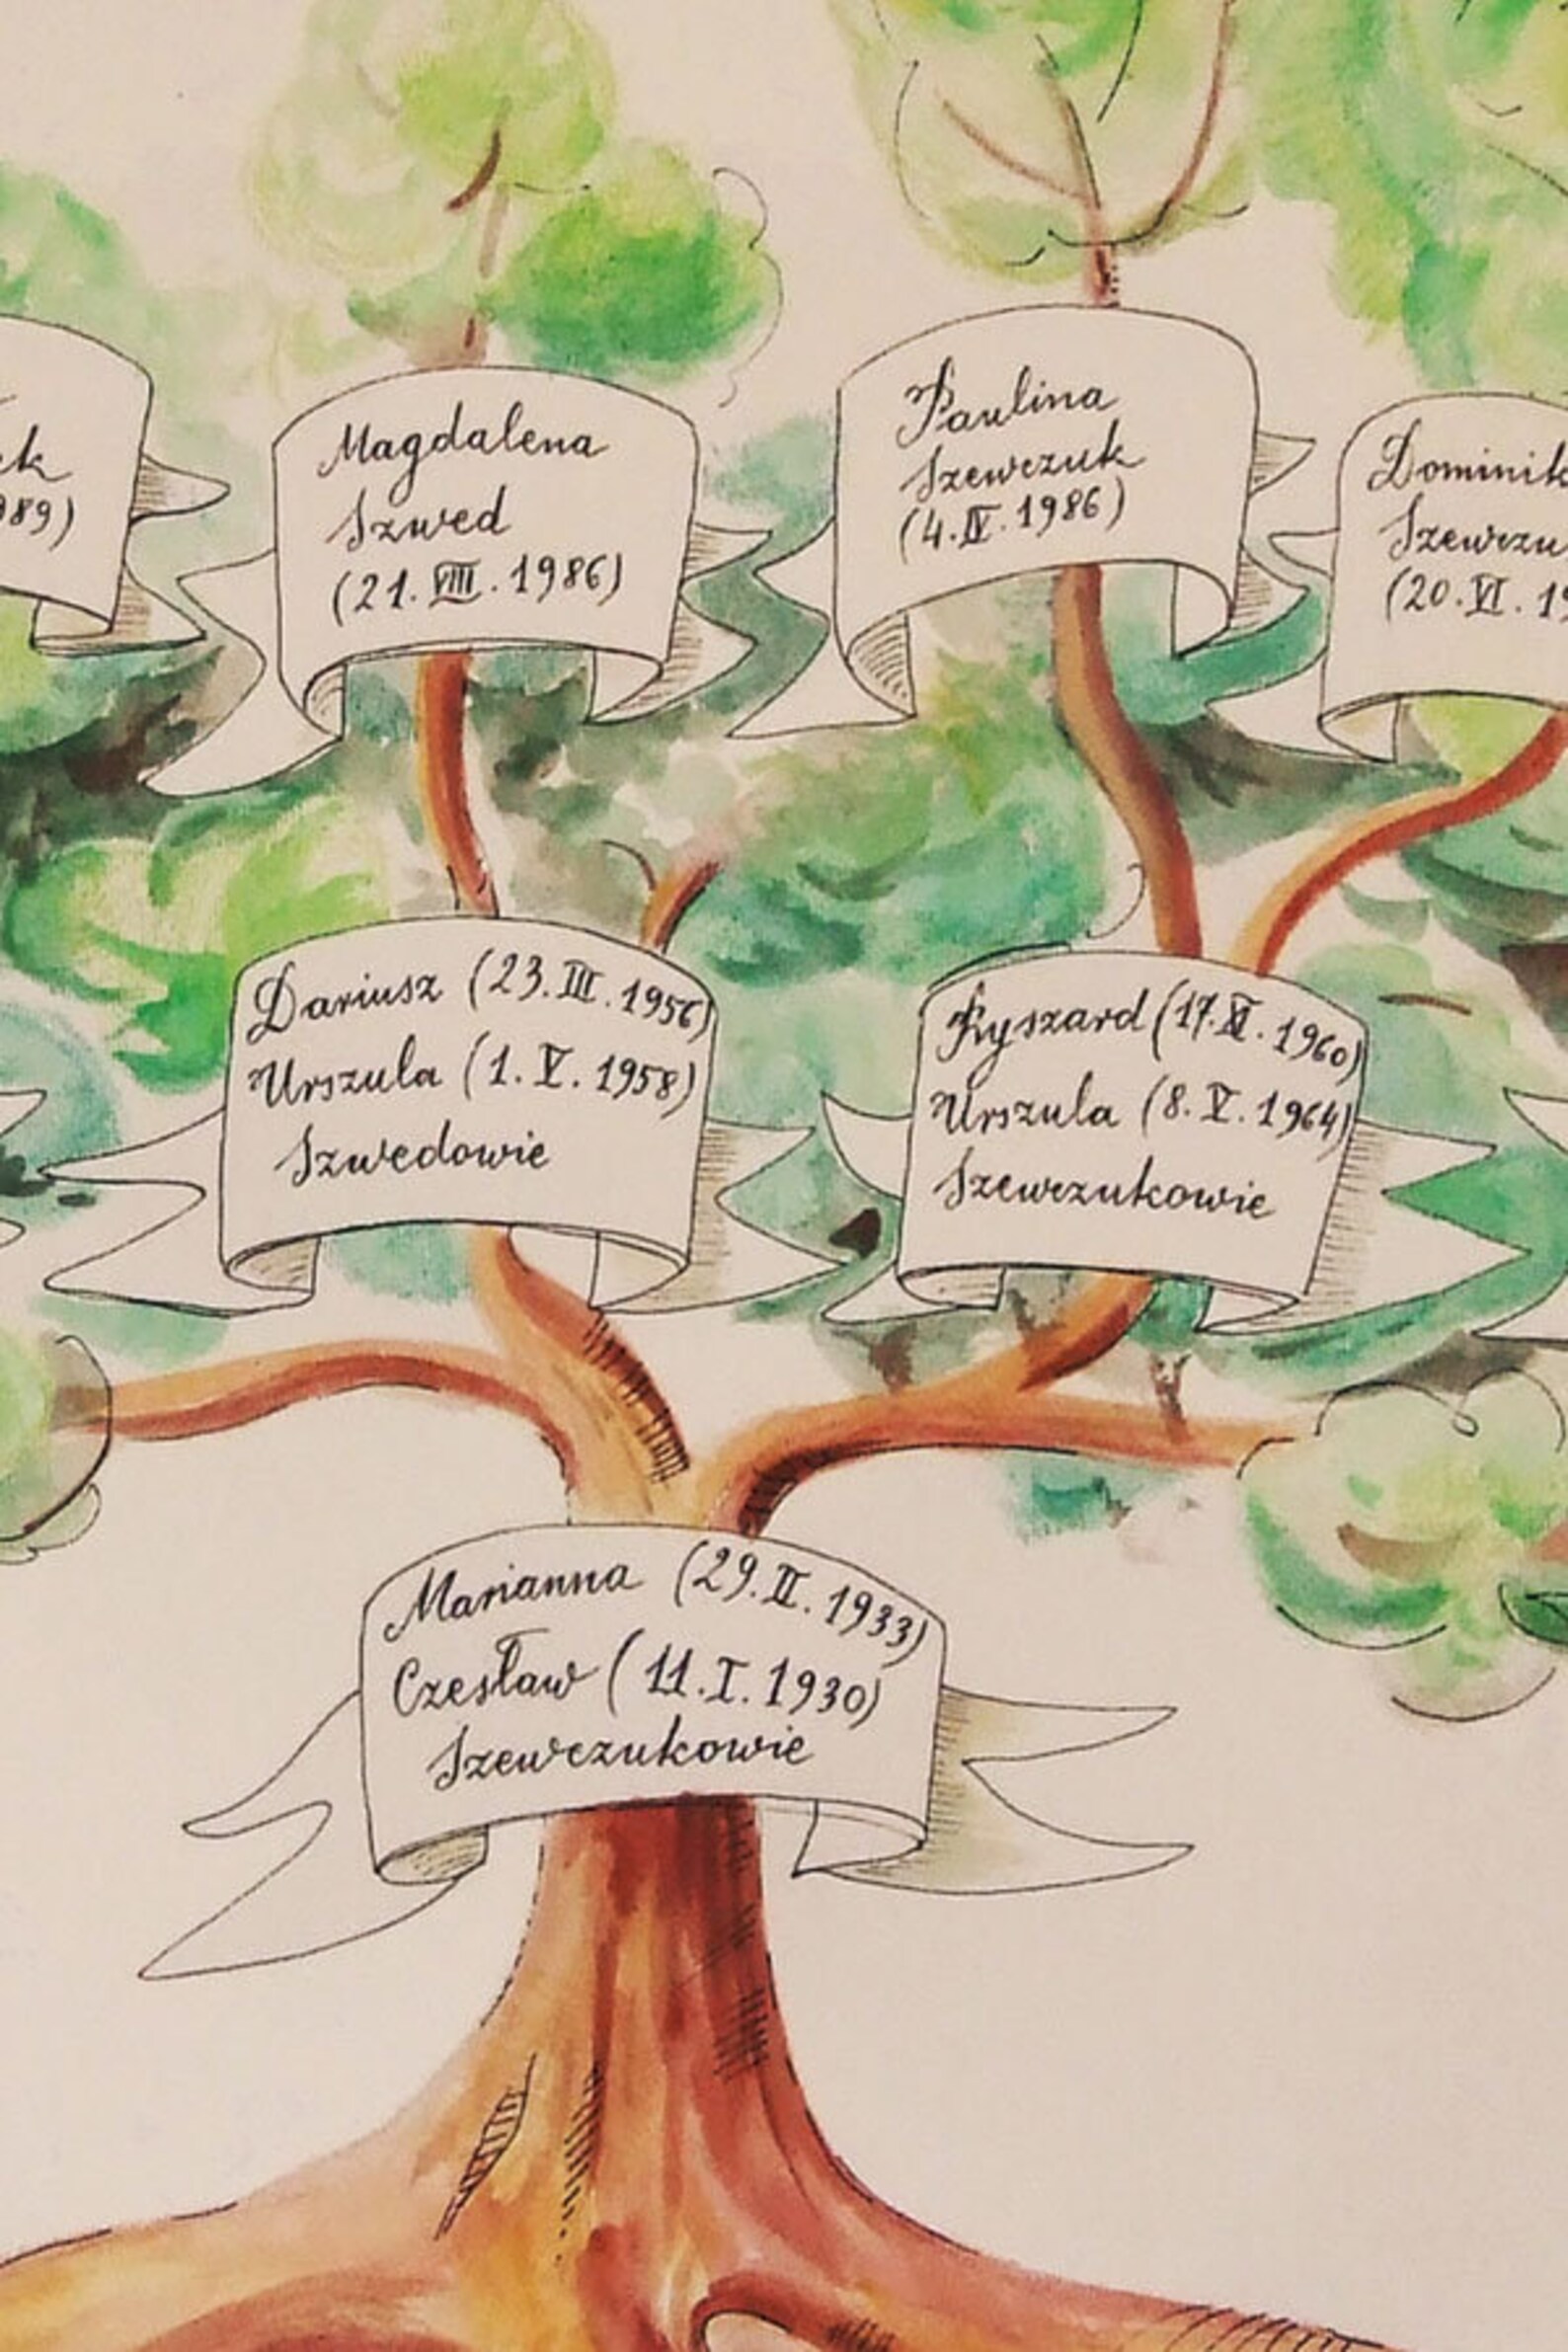 989)
Magdalena
Szwed
(21.VIII.1986)
Paulina
Szewczuk
(4.IV.1986)
Szewczu
(20.VI.19
Dariusz (23.III.1956)
Urszula (1.V.1958)
Szwedowie
Ryszard (17.XI.1960)
Urszula (8.V.1964)
Szewczukowie
Marianna (29.II.1933)
Czesław (11.I.1930)
Szewczukowie